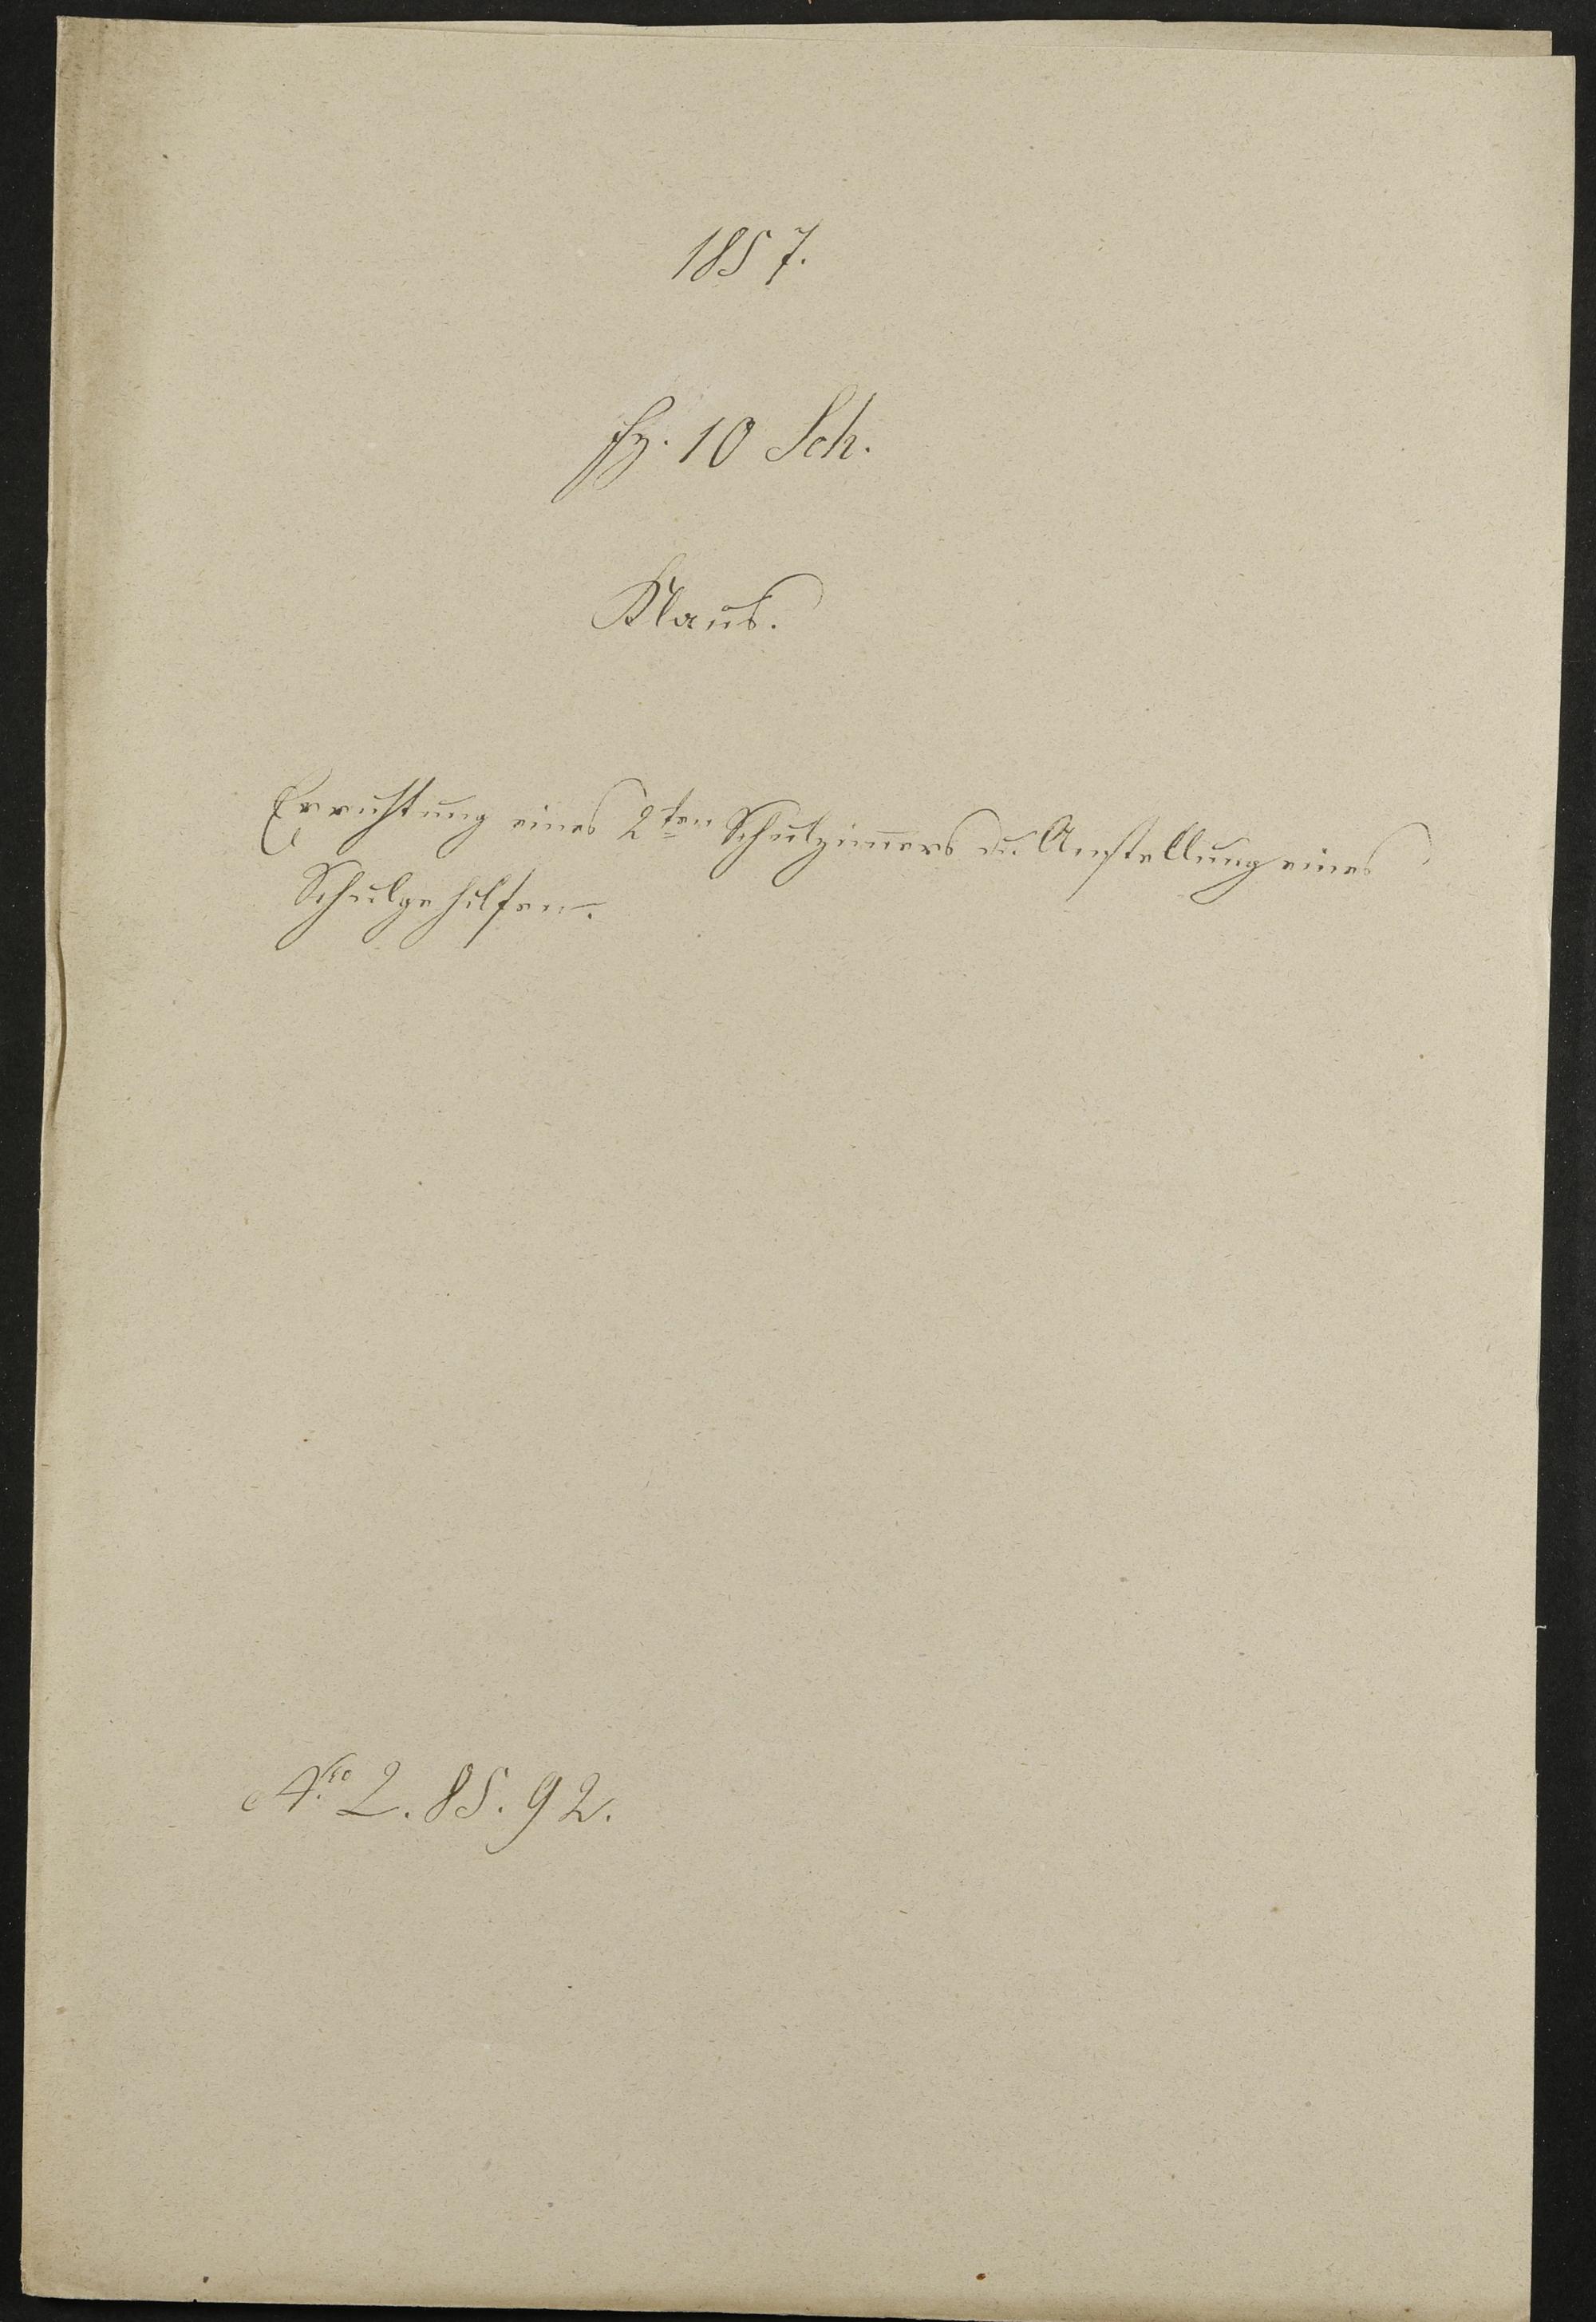 1857.
fz. 10 Sch.
Klaus.
Errichtung eines 2ten Schulzimers u. Anstellung eines
Schulgehilfen.
Nro 2. 85. 92.